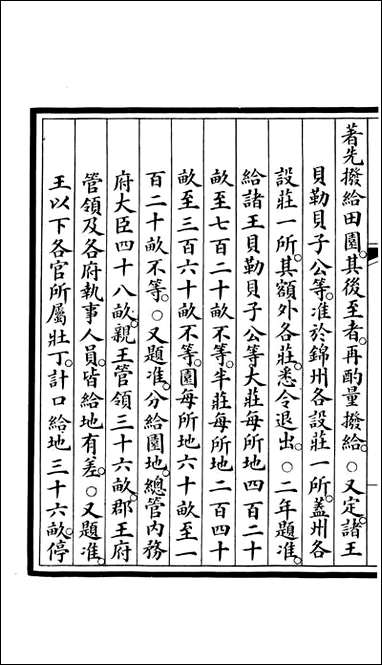 著先撥給田園。其後至者。再酌量撥給。○又定。諸王
貝勒貝子公等。准於錦州各設莊一所。蓋州各
設莊一所。其額外各莊。悉令退出。○二年題准。
給諸王貝勒貝子公等。大莊每所地四百二十
畝至七百二十畝不等。半莊每所地二百四十
畝至三百六十畝不等。園每所地六十畝至一
百二十畝不等。○又題准。分給園地。總管內務
府大臣四十八畝。親王管領三十六畝。郡王府
管領及各府執事人員。皆給地有差。○又題准。
王以下各官所屬壯丁。計口給地三十六畝。停